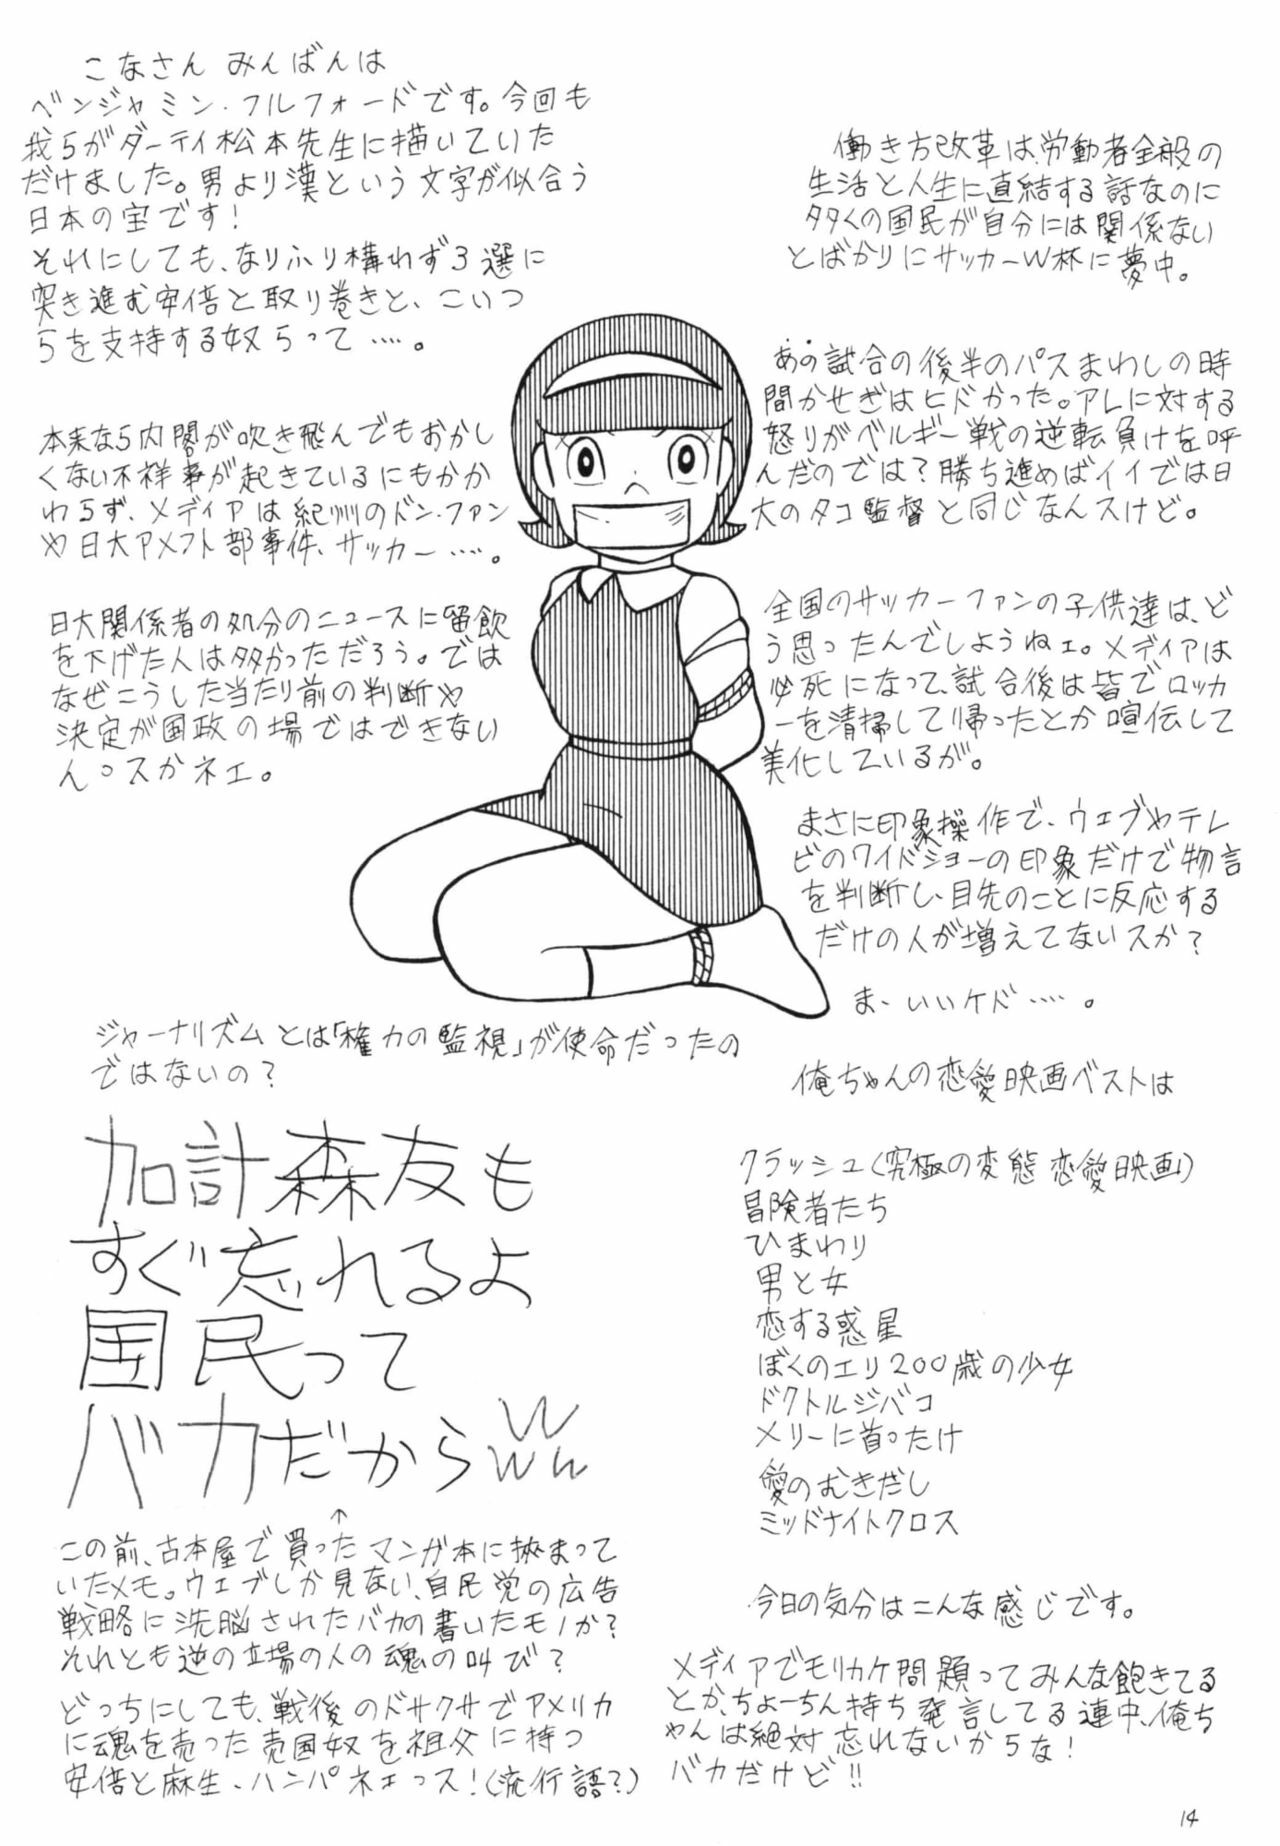 こなさん みんばんは
ベンジャミン・フルフォードです。今回も
我らがダーティ松本先生に描いていた
だけました。男より漢という文字が似合う
日本の宝です!
それにしても、なりふり構わず3選に
突き進む安倍と取り巻きと、こいつ
らを支持する奴らって……。
本来なら内閣が吹き飛んでもおかし
くない不祥事が起きているにもかか
わらず、メディアは紀州のドン・ファン
や日大アメフト部事件、サッカー……。
日大関係者の処分のニュースに留飲
を下げた人は多かっただろう。では
なぜこうした当たり前の判断や
決定が国政の場ではできない
んっスかネェ。
ジャーナリズムとは「権力の監視」が使命だったの
ではないの?
加計森友も
すぐ忘れるよ
国民って
バカだからwwww
↑
この前、古本屋で買ったマンガ本に挟まって
いたメモ。ウェブしか見ない、自民党の広告
戦略に洗脳されたバカの書いたモノか?
それとも逆の立場の人の魂の叫び?
どっちにしても、戦後のドサクサでアメリカ
に魂を売った売国奴を祖父に持つ
安倍と麻生、ハンパネェっス!(流行語?)
働き方改革は、労働者全般の
生活と人生に直結する話なのに
多くの国民が自分には関係ない
とばかりにサッカーW杯に夢中。
あの試合の後半のパスまわしの時
間かせぎはヒドかった。アレに対する
怒りがベルギー戦の逆転負けを呼
んだのでは?勝ち進めばイイでは日
大のタコ監督と同じなんスけど。
全国のサッカーファンの子供達は、ど
う思ったんでしようねェ。メディアは
必死になって、試合後は皆でロッカ
ーを清掃して帰ったとか喧伝して
美化しているが。
まさに印象操作で、ウェブやテレ
ビのワイドショーの印象だけで物言
を判断し、目先のことに反応する
だけの人が増えてないスか?
ま、いいケド……。
俺ちゃんの恋愛映画ベストは
クラッシュ(究極の変態恋愛映画!)
冒険者たち
ひまわり
男と女
恋する惑星
ぼくのエリ200歳の少女
ドクトルジバコ
メリーに首ったけ
愛のむきだし
ミッドナイトクロス
今日の気分はこんな感じです。
メディアでモリカケ問題ってみんな飽きてる
とか、ちょーちん持ち発言してる連中、俺ち
ゃんは絶対忘れないからな!
バカだけど!!
14